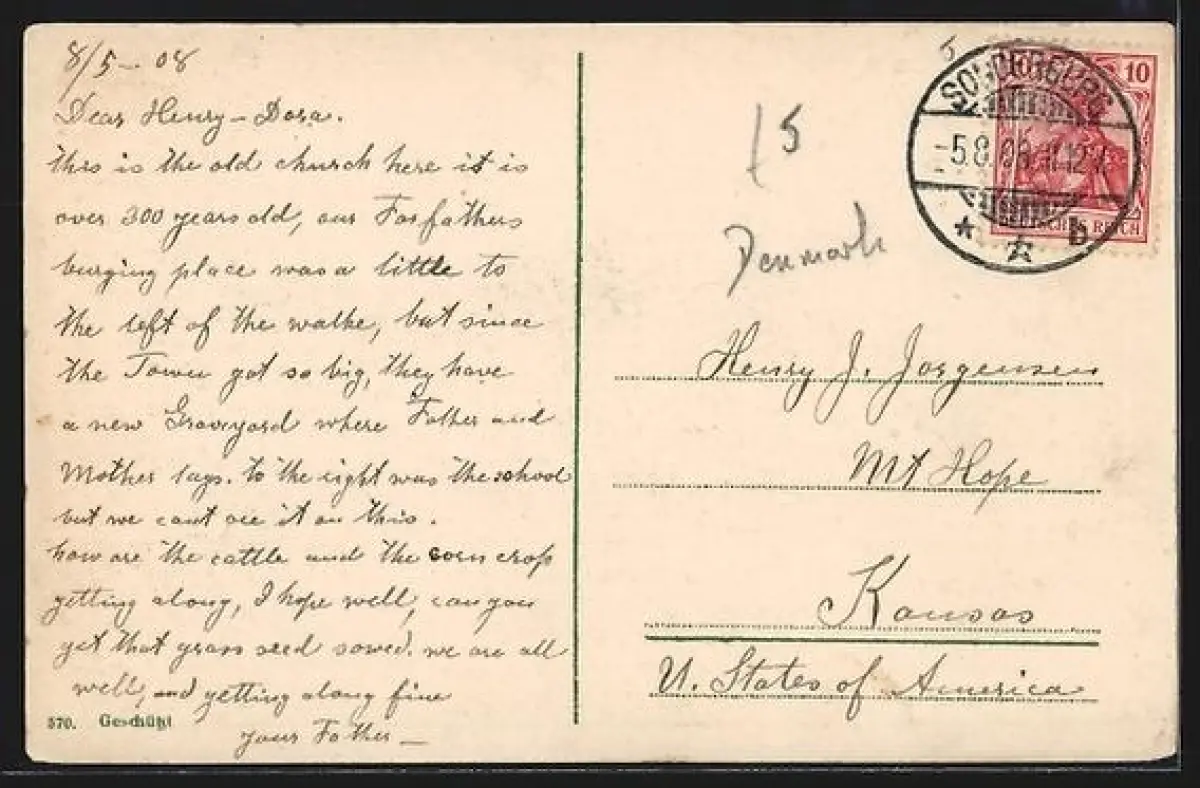 8/5 - 08
Dear Henry - Dora.
this is the old church here it is
over 300 years old, our Forfathers
burging place was a little to
the left of the walke, but since
the Town got so big, they have
a new Graveyard where Father and
Mother lays. to the right was the school
but we cant see it on this.
how are the cattle and the corn crop
getting along, I hope well, can you
get that grass seed sowed. we are all
well, and getting along fine
your Father -
570. Geschützt
15
Denmark
SONDERBURG
-5.8.08. 12
* * b
10
DEUTSCHES REICH
Henry J. Jorgensen
Mt Hope
Kansas
U. States of America